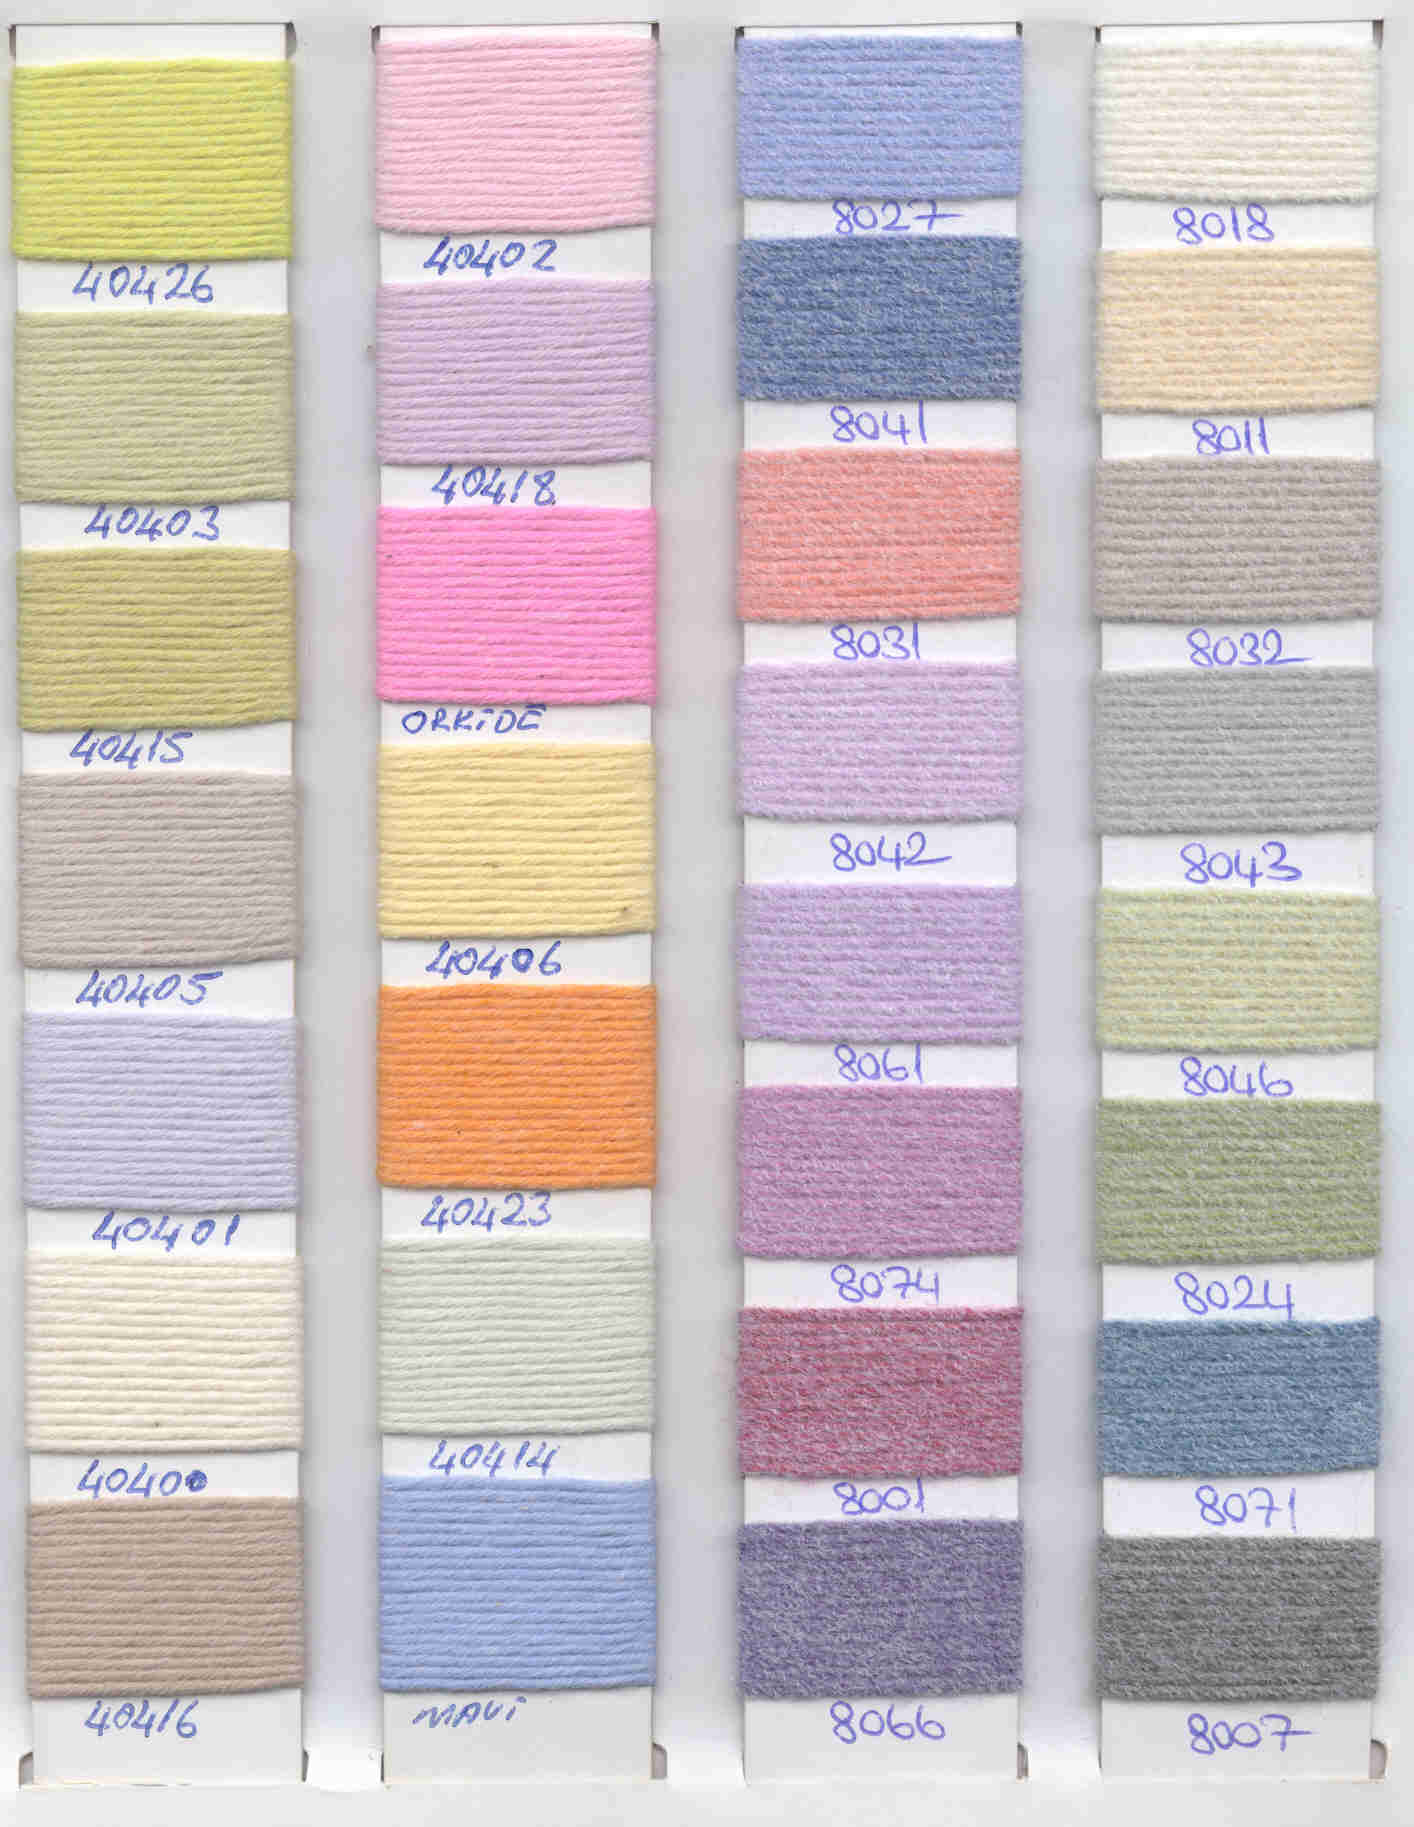 40426
40403
40415
40405
40401
40400
40416
40402
40418
ORKİDE
40406
40423
40414
MAVİ
8027
8041
8031
8042
8061
8074
8001
8066
8018
8011
8032
8043
8046
8024
8071
8007